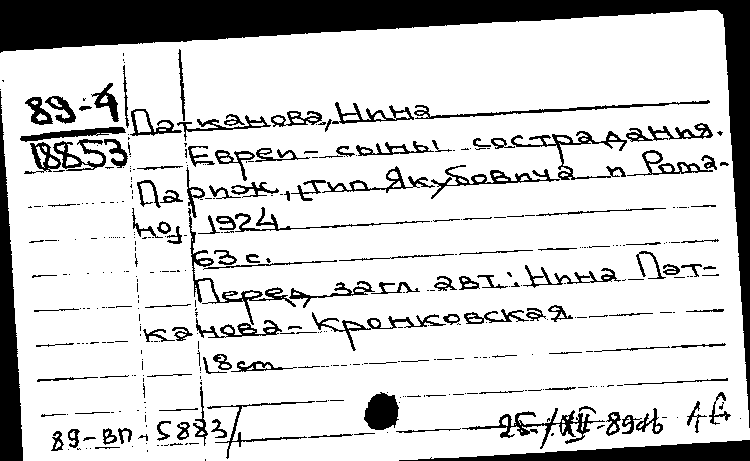 89-4
18853
Патканова, Нина
Евреи - сыны сострадания.
Париж, [тип. Якубовича и Рома-
но], 1924.
63 с.
Перед загл. авт.: Нина Пат-
канова-Кронковская.
18 cm
89-ВП-5883/1
25/XII-89